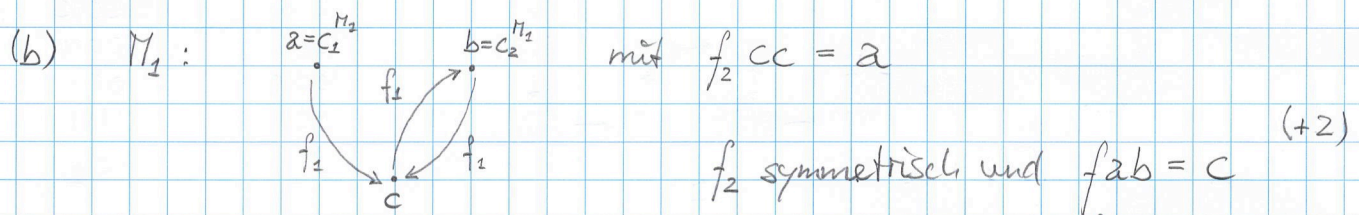 (b) M₁ : a=c₁^M₁ b=c₂^M₁ mit f₂ cc = a
f₁
(+2)
f₁ f₁ f₂ symmetrisch und fab = c
c